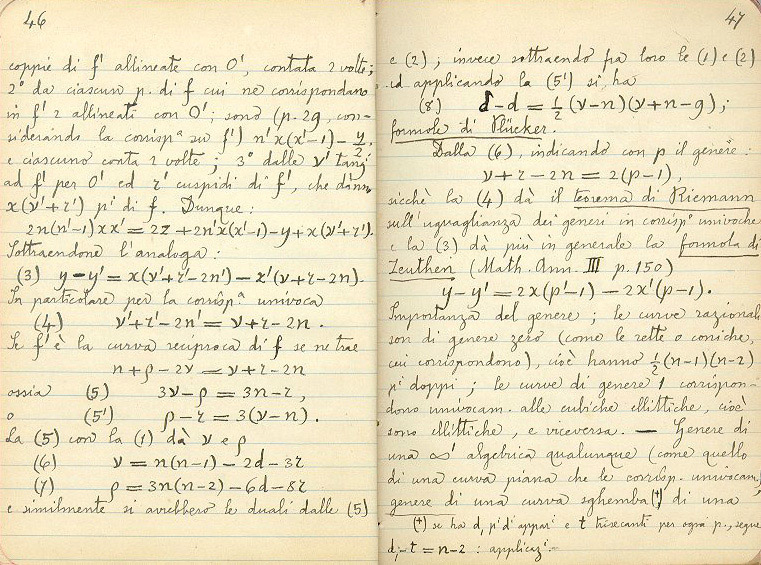 46
coppie di f' allineate con O', contata 2 volte;
2° da ciascun p. di f cui ne corrispondano
in f' 2 allineati con O'; sono (p. 29, con-
siderando la corrisp.ª su f') n'x(x'-1) - y/2,
e ciascuno conta 2 volte; 3° dalle ν' tangi
ad f' per O' ed r' cuspidi di f', che danno
x(ν'+r') pi di f. Dunque:
2n(n'-1)xx' = 2z + 2n'x(x'-1) - y + x(ν'+r').
Sottraendone l'analoga:
(3) y-y' = x(ν'+r'-2n') - x'(ν+r-2n).
In particolare per la corrisp.ª univoca
(4) ν'+r'-2n' = ν+r-2n.
Se f' è la curva reciproca di f se ne trae
n+ρ-2ν = ν+r-2n
ossia (5) 3ν-ρ = 3n-r,
o (5') ρ-r = 3(ν-n).
La (5) con la (1) dà ν e ρ
(6) ν = n(n-1) - 2d - 3r
(7) ρ = 3n(n-2) - 6d - 8r
e similmente si avrebbero le duali dalle (5)
47
e (2); invece sottraendo fra loro le (1) e (2)
ed applicando la (5') si ha
(8) δ-d = ½(ν-n)(ν+n-9);
formole di Plücker.
Dalla (6), indicando con p il genere:
ν+r-2n = 2(p-1),
sicchè la (4) dà il teorema di Riemann
sull'uguaglianza dei generi in corrisp.e univoche
e la (3) dà più in generale la formola di
Zeuthen (Math. Ann. III p. 150)
y-y' = 2x(p'-1) - 2x'(p-1).
Importanza del genere; le curve razionali
son di genere zero (come le rette o coniche,
cui corrispondono), cioè hanno ½(n-1)(n-2)
pi doppi; le curve di genere 1 corrispon-
dono univocam. alle cubiche ellittiche, cioè
sono ellittiche, e viceversa. — Genere di
una ∞¹ algebrica qualunque (come quello
di una curva piana che le corrisp. univocam.)
genere di una curva sghemba (+), di una
(+) se ha d₁ pi di appari e t trisecanti per ogni p., segue
d₁-t = n-2 : applicazi.-